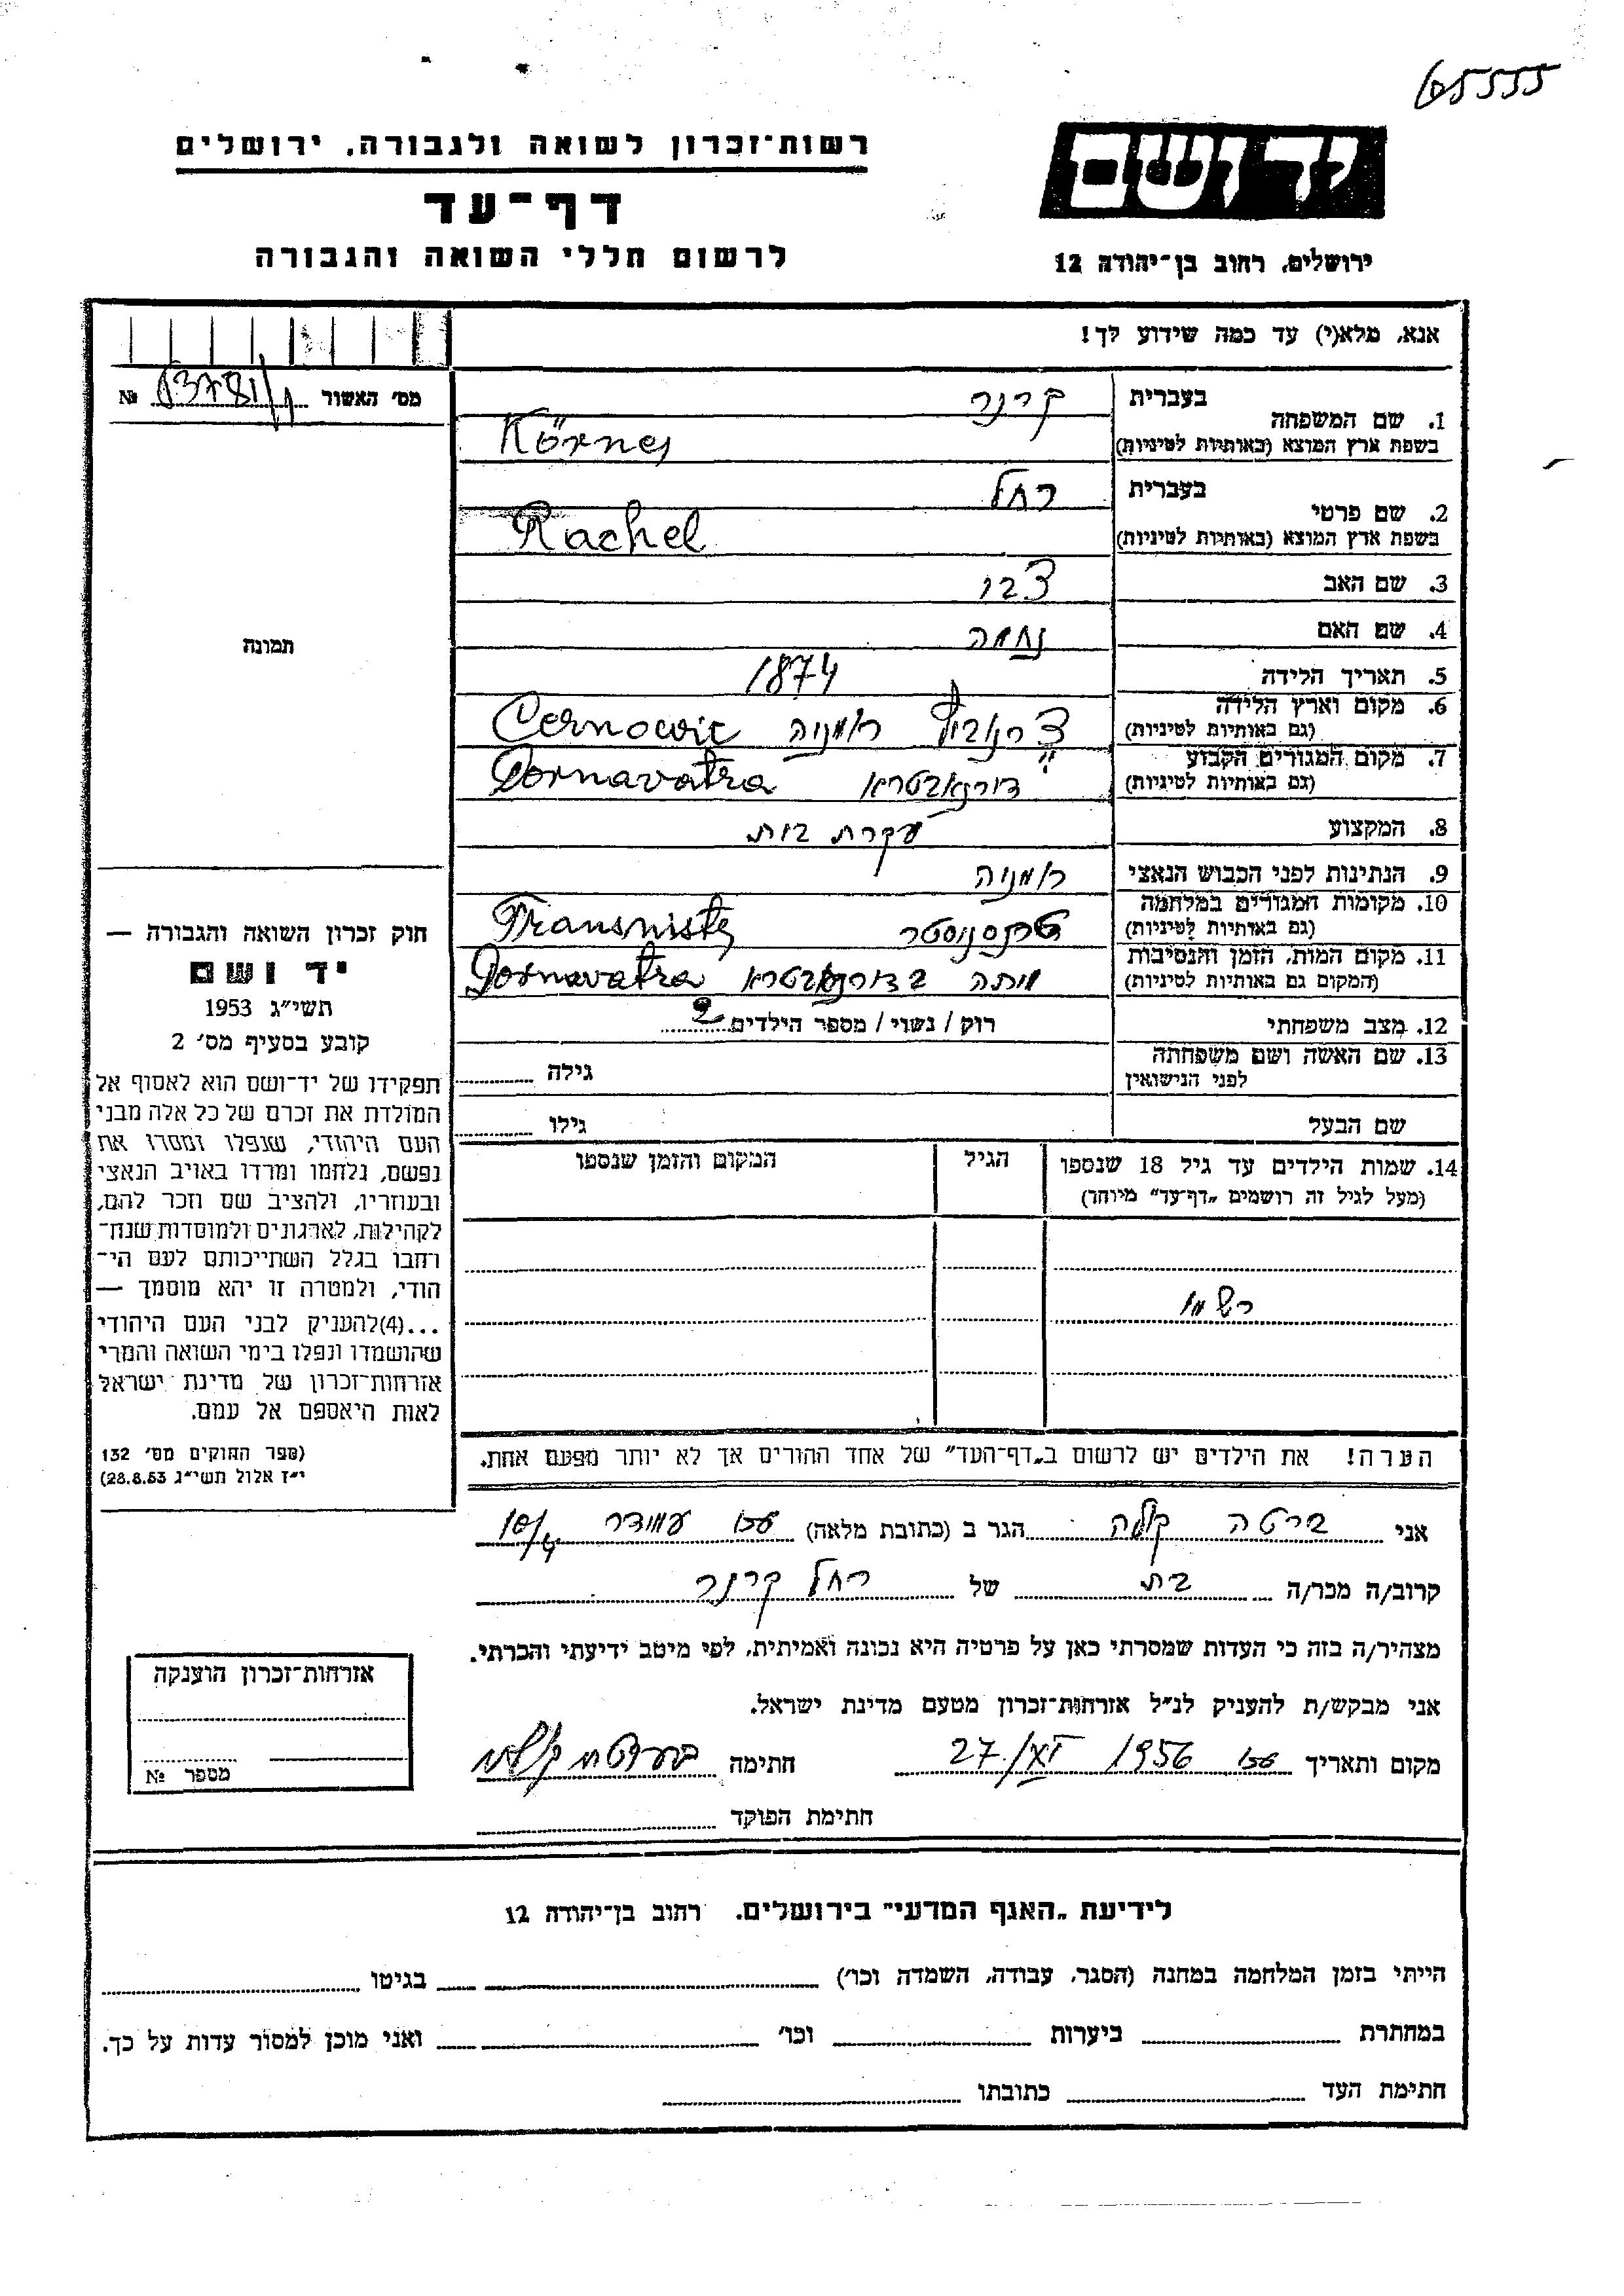 65555
רשות־זכרון לשואה ולגבורה, ירושלים
דף־עד
לרשום חללי השואה והגבורה
יד ושם
ירושלים, רחוב בן־יהודה 12
אנא, מלא(י) עד כמה שידוע לך!
מס׳ האשור № 83781/1
1. שם המשפחה
בעברית קרנר
בשפת ארץ המוצא (באותיות לטיניות) Körner
2. שם פרטי
בעברית רחל
בשפת ארץ המוצא (באותיות לטיניות) Rachel
3. שם האב צבי
4. שם האם נחמה
5. תאריך הלידה 1874
6. מקום וארץ הלידה
(גם באותיות לטיניות) רומניה Cernowic
7. מקום המגורים הקבוע
(גם באותיות לטיניות) דורנאבטרא Dornavatra
8. המקצוע עקרת בית
9. הנתינות לפני הכבוש הנאצי רומניה
10. מקומות המגורים במלחמה
(גם באותיות לטיניות) טרנסניסטר Transnister
11. מקום המות, הזמן והנסיבות
(המקום גם באותיות לטיניות) מתה בדורנאבטרא Dornavatra
12. מצב משפחתי רוק / נשוי / מספר הילדים 2
13. שם האשה ושם משפחתה
לפני הנישואין גילה
שם הבעל גילו
14. שמות הילדים עד גיל 18 שנספו
(מעל לגיל זה רושמים „דף־עד״ מיוחד)
הגיל
המקום והזמן שנספו
הערה! את הילדים יש לרשום ב„דף־העד״ של אחד ההורים אך לא יותר מפעם אחת.
תמונה
חוק זכרון השואה והגבורה —
יד ושם
תשי״ג 1953
קובע בסעיף מס׳ 2
תפקידו של יד־ושם הוא לאסוף אל
המולדת את זכרם של כל אלה מבני
העם היהודי, שנפלו ומסרו את
נפשם, נלחמו ומרדו באויב הנאצי
ובעוזריו, ולהציב שם וזכר להם,
לקהילות, לארגונים ולמוסדות שנח־
רחבו בגלל השתייכותם לעם הי־
הודי, ולמטרה זו יהא מוסמך —
...(4)להעניק לבני העם היהודי
שהושמדו ונפלו בימי השואה והמרי
אזרחות־זכרון של מדינת ישראל
לאות היאספם אל עמם.
(ספר החוקים מס׳ 132
י״ז אלול תשי״ג 28.8.53)
אני ברטה הגר ב (כתובת מלאה) עמידר 10/4
קרוב/ה מכר/ה בת של רחל קרנר
מצהיר/ה בזה כי העדות שמסרתי כאן על פרטיה היא נכונה ואמיתית, לפי מיטב ידיעתי והכרתי.
אני מבקש/ת להעניק לנ״ל אזרחות־זכרון מטעם מדינת ישראל.
מקום ותאריך 27/XI 1956 חתימה
חתימת הפוקד
אזרחות־זכרון הוענקה
מספר №
לידיעת „האגף המדעי״ בירושלים. רחוב בן־יהודה 12
הייתי בזמן המלחמה במחנה (הסגר, עבודה, השמדה וכו׳) בגיטו
במחתרת ביערות וכו׳ ואני מוכן למסור עדות על כך.
חתימת העד כתובתו